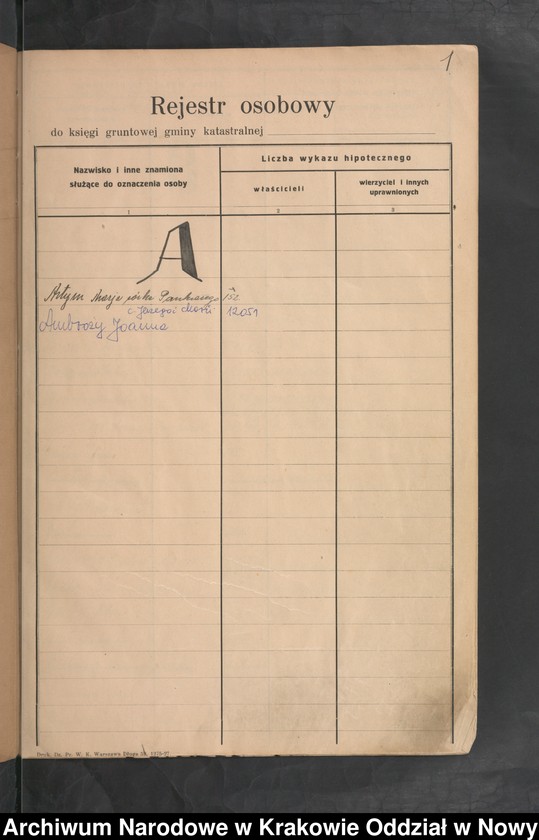 1
Rejestr osobowy
do księgi gruntowej gminy katastralnej
Nazwisko i inne znamiona
służące do oznaczenia osoby
Liczba wykazu hipotecznego
właścicieli
wierzycieli i innych
uprawnionych
1 2 3
A
Artym Marja córka Pankracego 152
c. Józefa i Marii 12051
Ambroży Joanna
Druk. Zw. Pr. W. K. Warszawa Długa
Archiwum Narodowe w Krakowie Oddział w Nowy